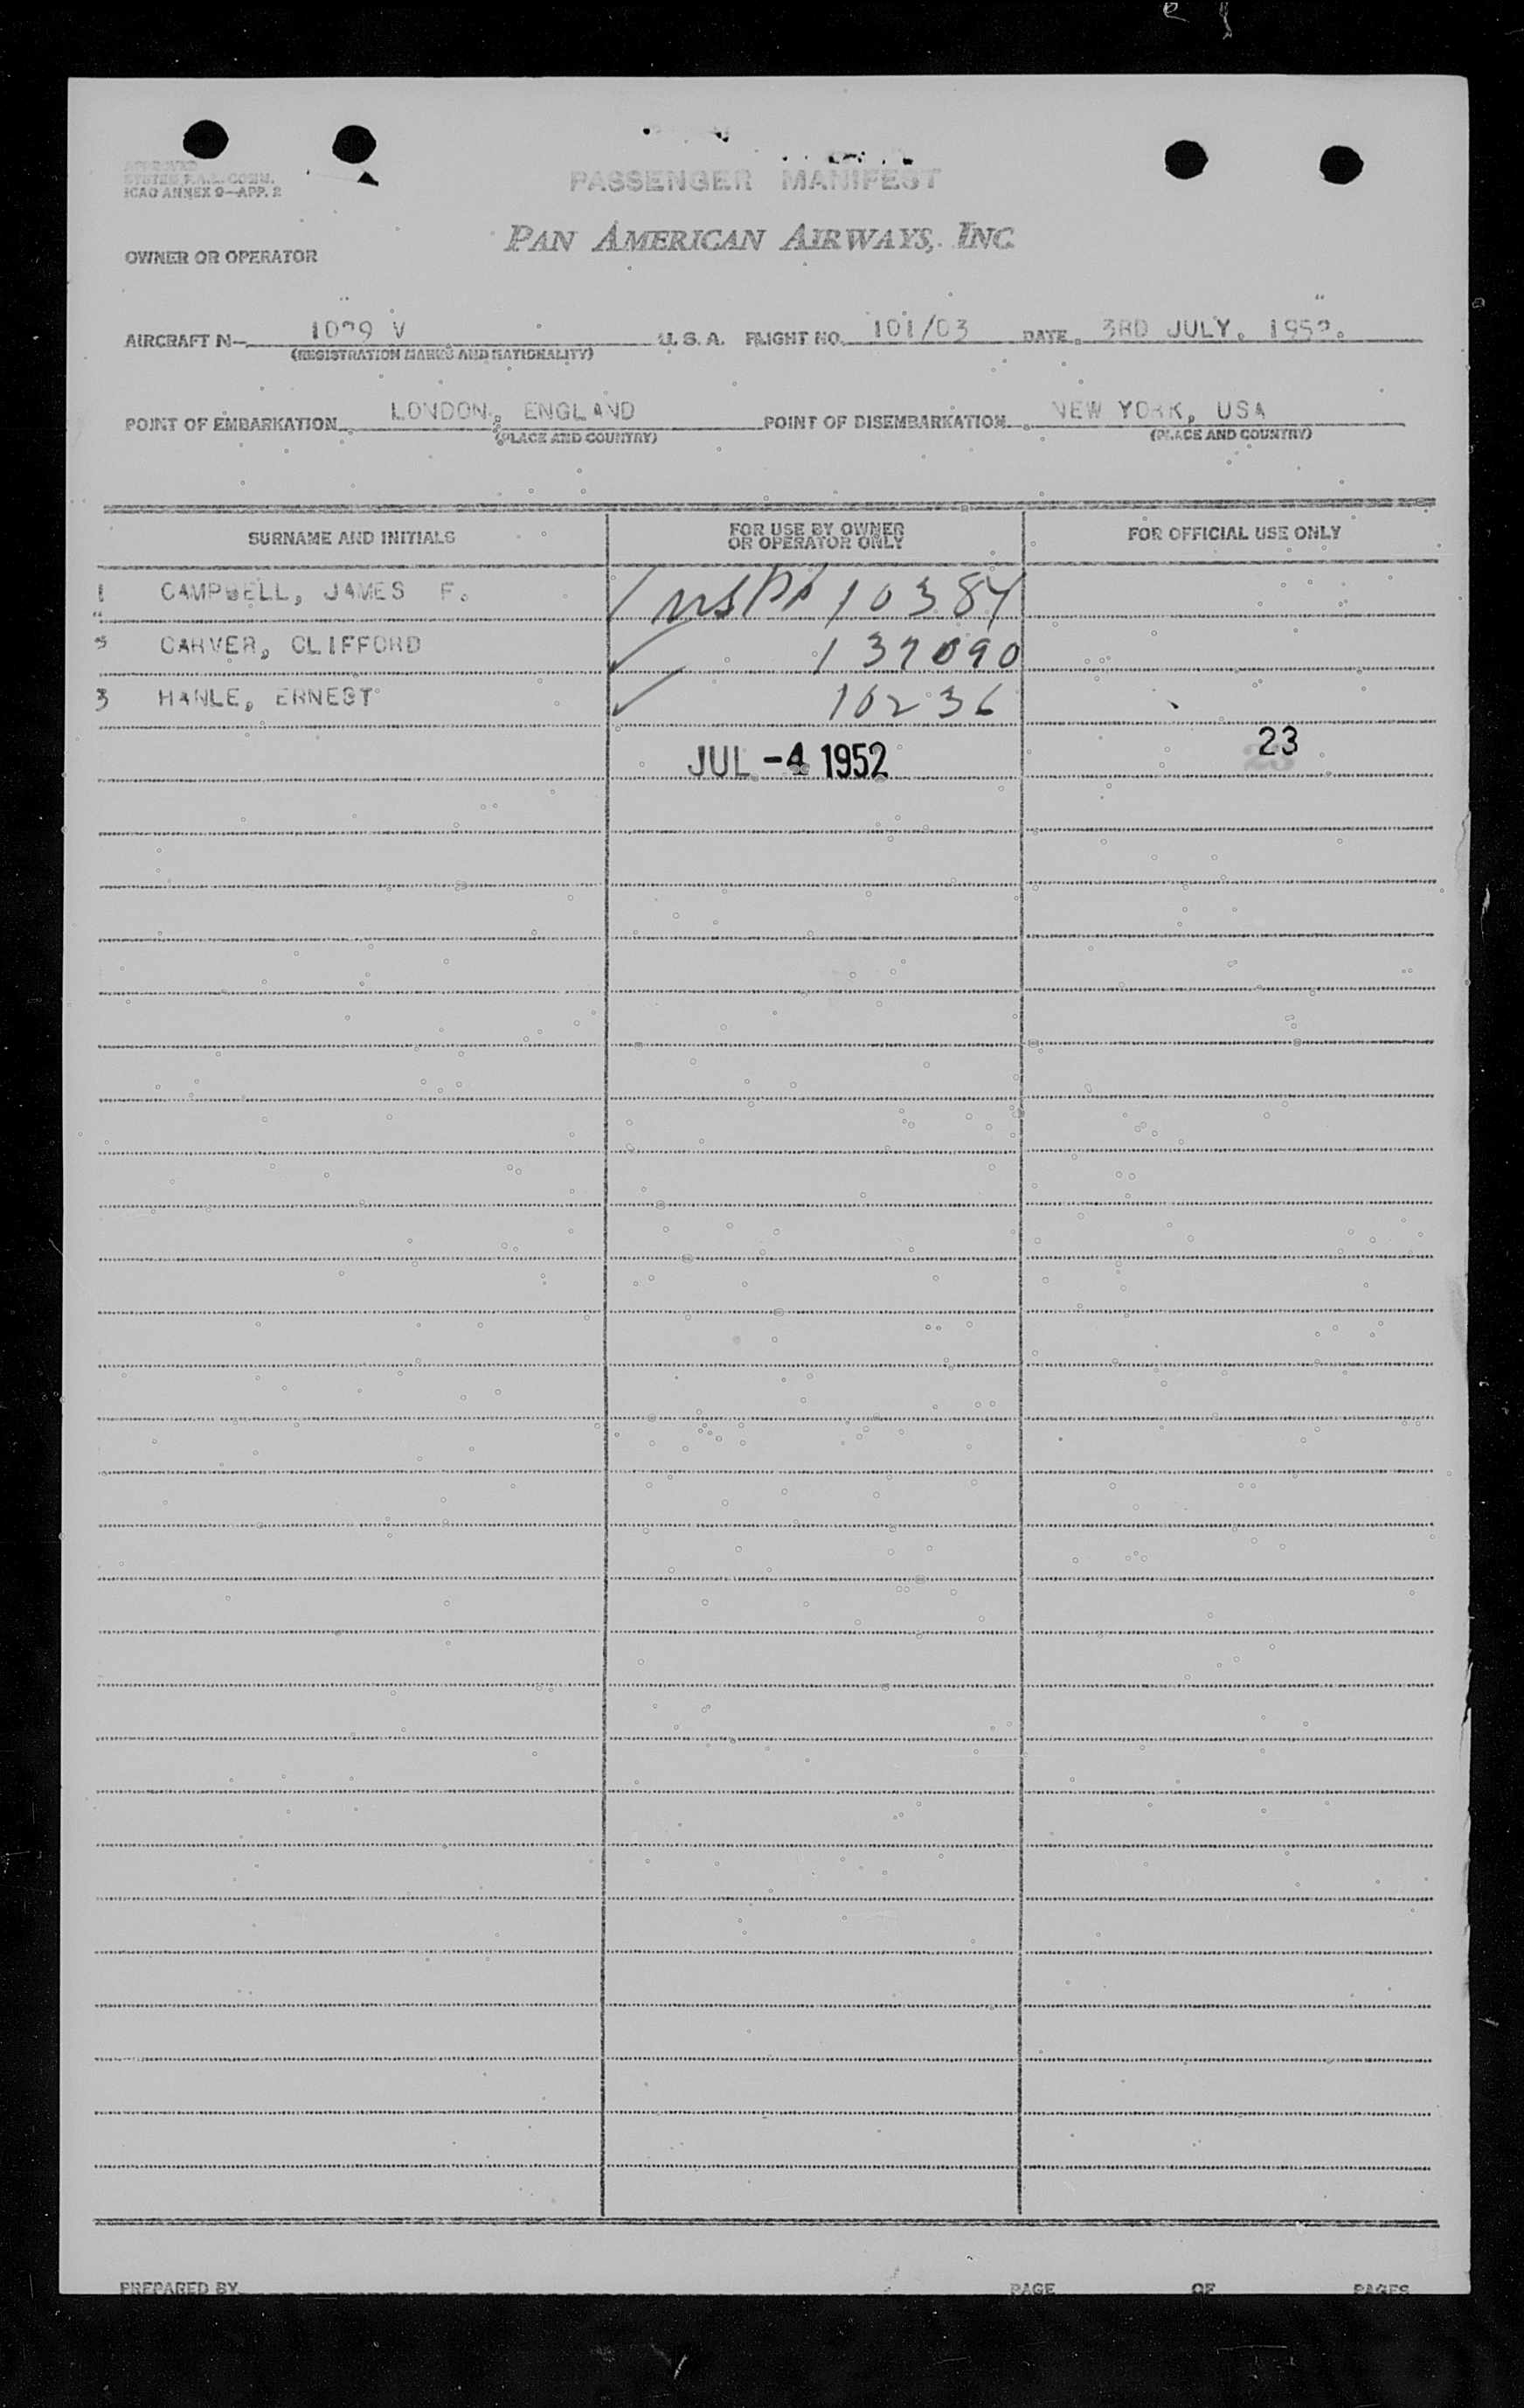 APPROVED
SYSTEM F.A.L. COMM.
ICAO ANNEX 9—APP. 2
PASSENGER MANIFEST
PAN AMERICAN AIRWAYS, INC.
OWNER OR OPERATOR
AIRCRAFT N- 1039 V U. S. A. FLIGHT NO. 101/03 DATE 3RD JULY. 1952.
(REGISTRATION MARKS AND NATIONALITY)
POINT OF EMBARKATION LONDON, ENGLAND POINT OF DISEMBARKATION NEW YORK, USA
(PLACE AND COUNTRY) (PLACE AND COUNTRY)
SURNAME AND INITIALS FOR USE BY OWNER OR OPERATOR ONLY FOR OFFICIAL USE ONLY
1 CAMPBELL, JAMES F. 10384
CARVER, CLIFFORD 137090
3 HANLE, ERNEST 10236
JUL -4 1952 23
PREPARED BY PAGE OF PAGES